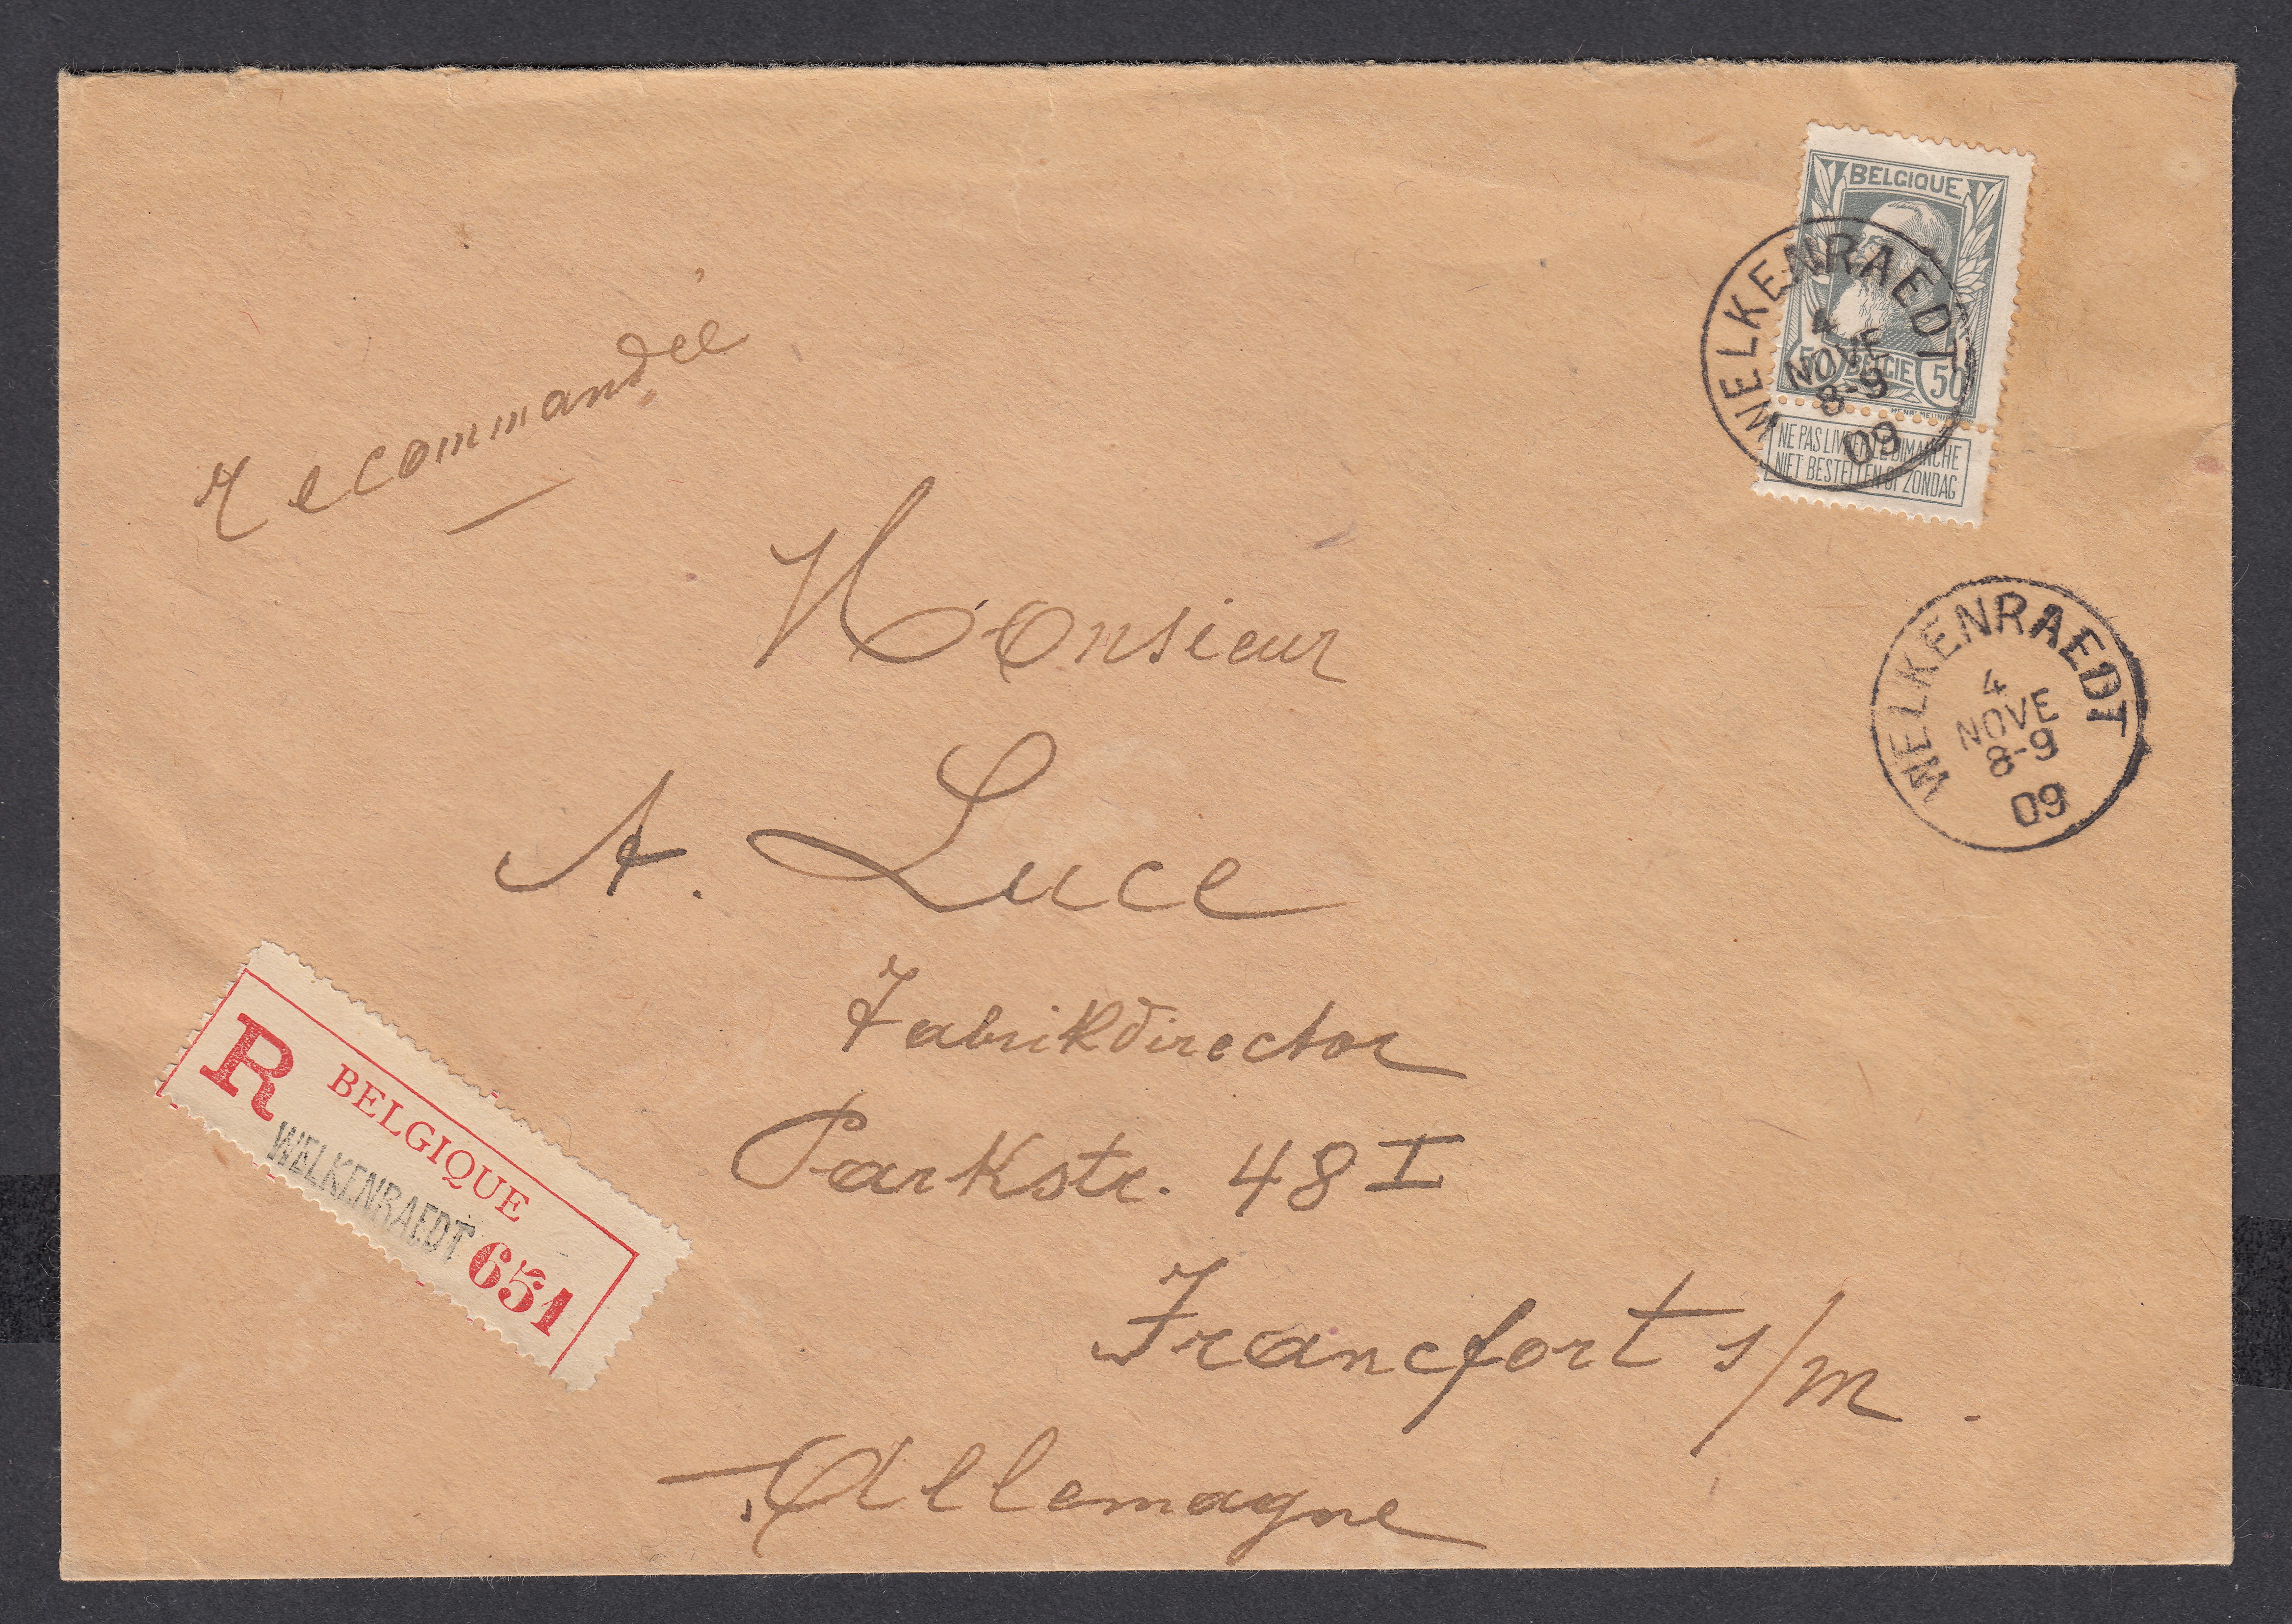 recommandée
BELGIQUE
50 BELGIE 50
NE PAS LIVRER LE DIMANCHE
NIET BESTELLEN OP ZONDAG
WELKENRAEDT
4
NOVE
8-9
09
WELKENRAEDT
4
NOVE
8-9
09
Monsieur
A. Luce
Fabrikdirector
Parkstr. 48 I
Francfort s/m.
Allemagne
R BELGIQUE
WELKENRAEDT 651